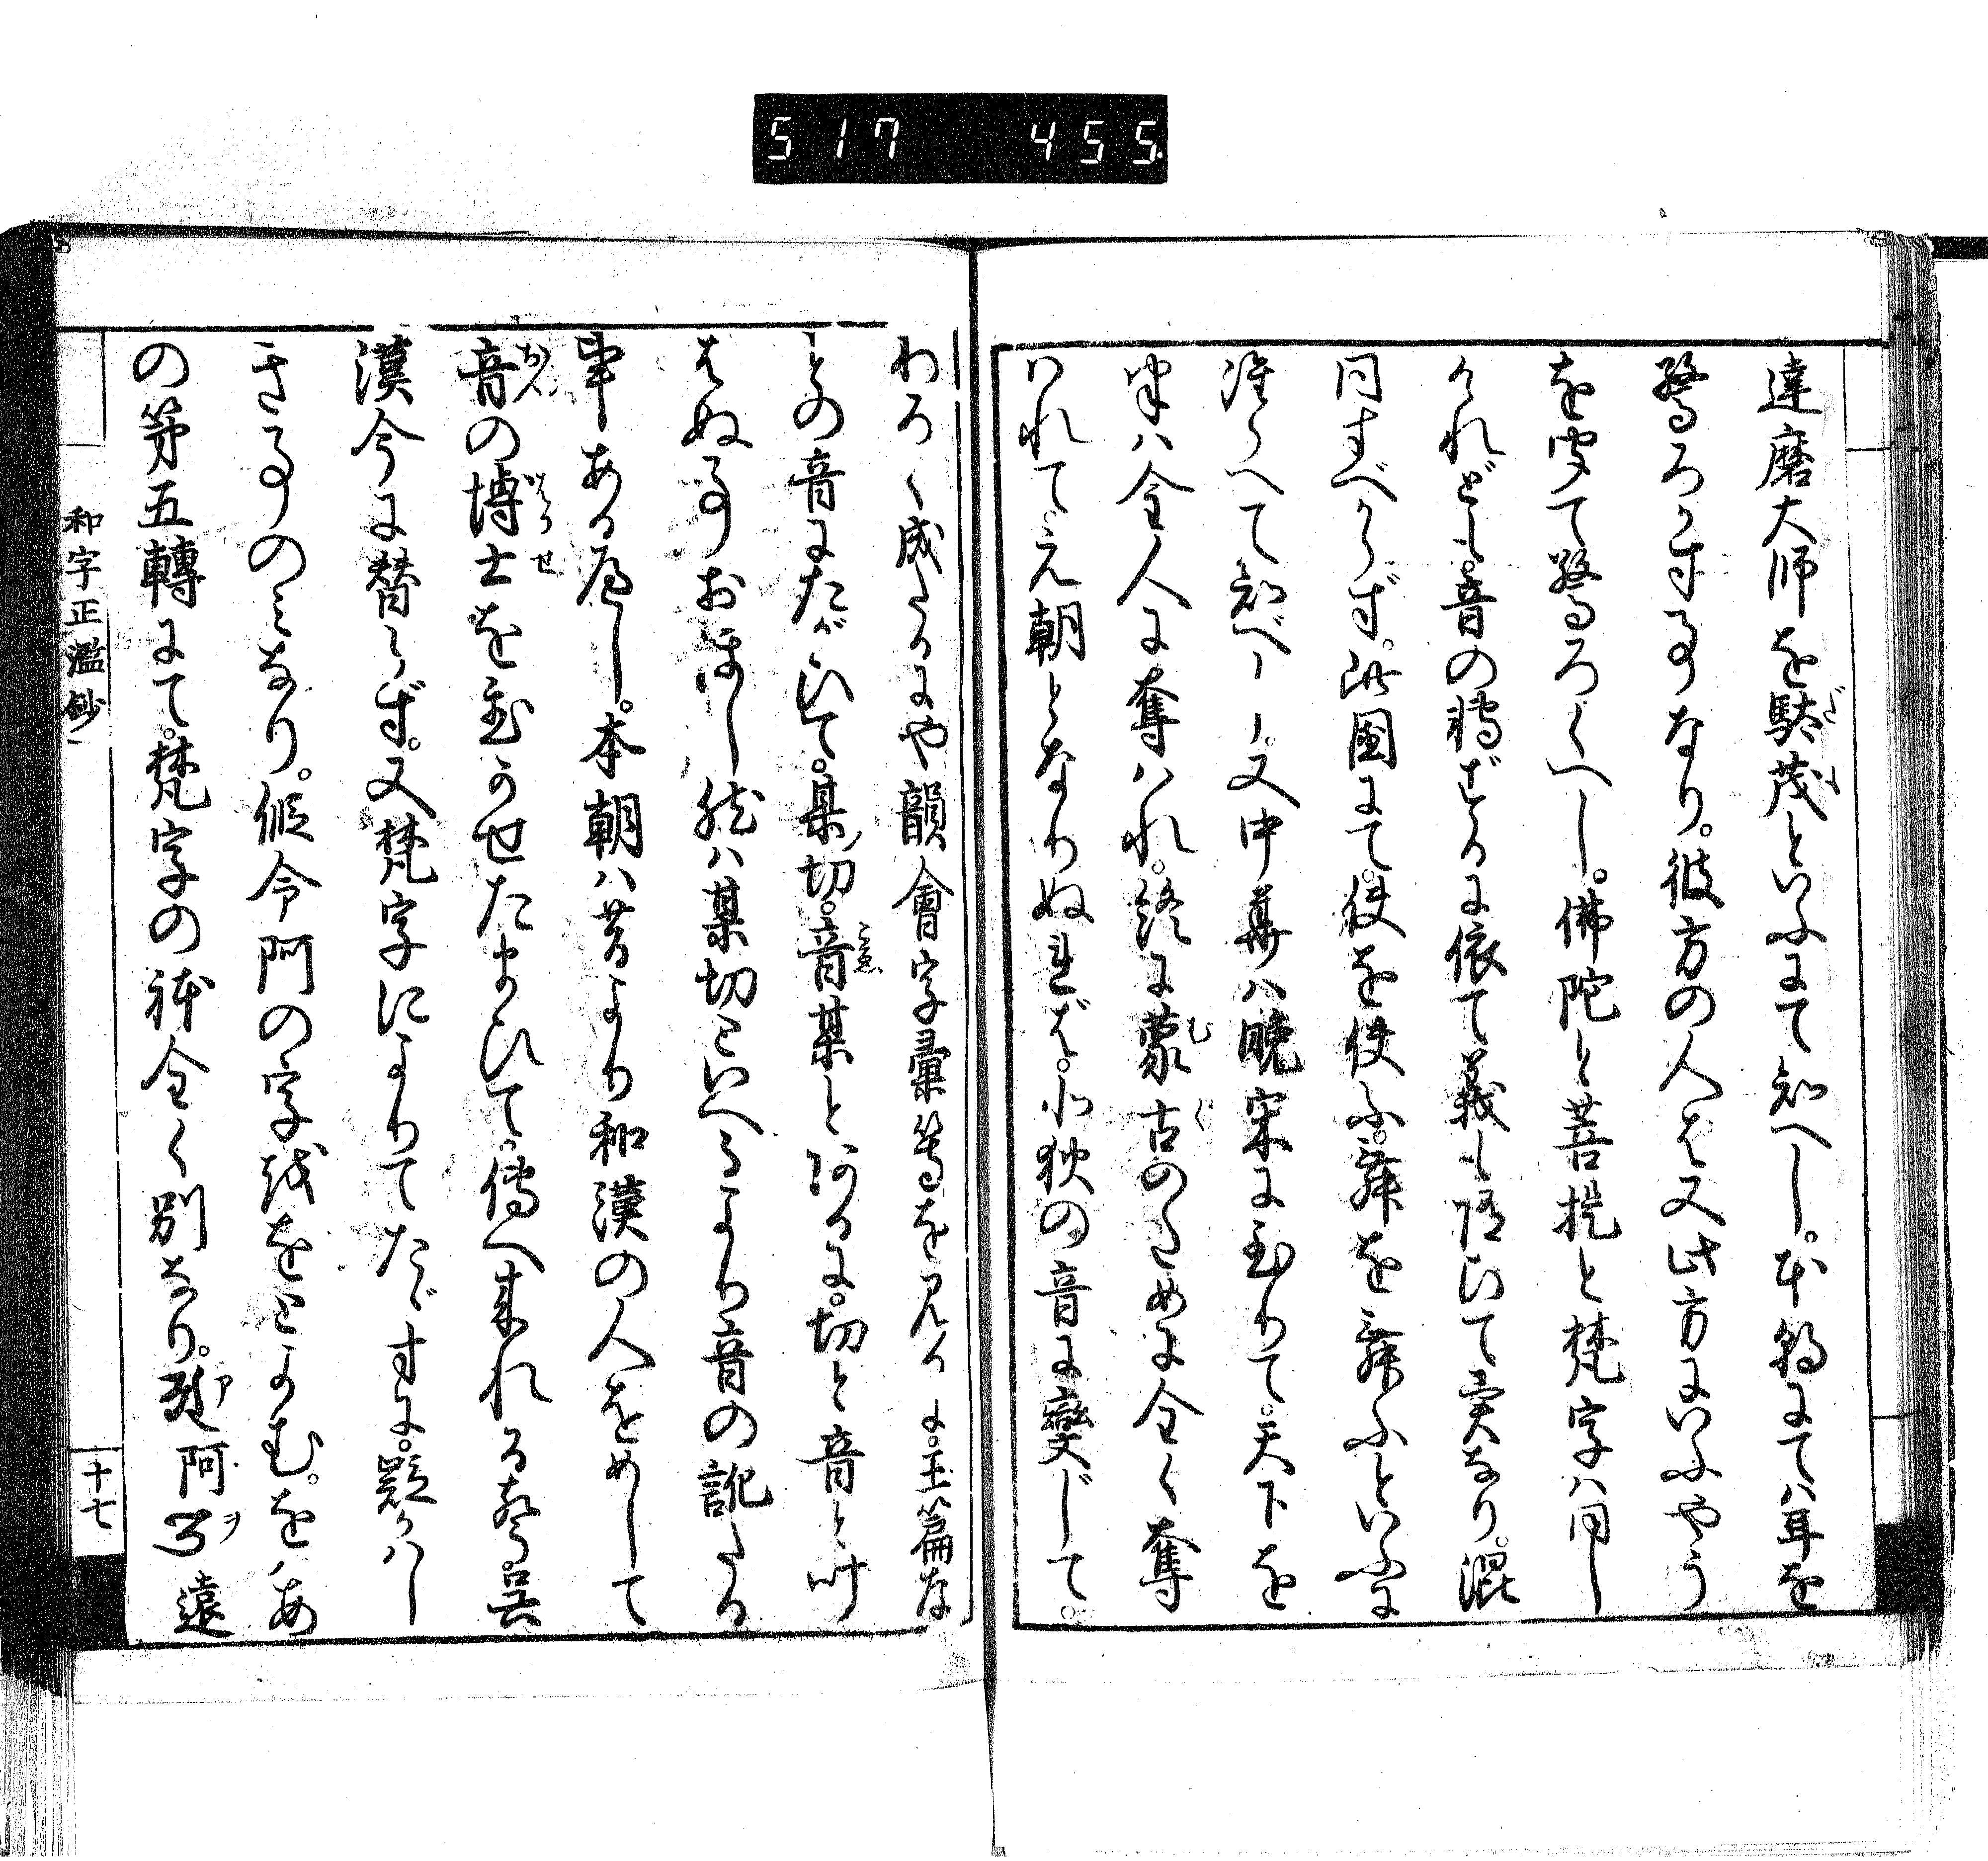 517 455
達磨大師を駄茂といふにて知へし。本朝にては耳を
驚ろかす事なり。彼方の人は又此方にいふやう
を聞て驚ろくへし。佛陀と菩提と梵字は同し
けれども、音の轉ずるに依て義も隨ひて異なり。混
同すべからず。此國にて使を使ふ。舞を舞ふといふに
准らへて知べし。又中華は晩宋に至りて。天下を
半は金人に奪はれ。終に蒙古のために全く奪
はれて元朝となりぬれば。北狄の音に變じて。
わろく成たるにや韻會字彙等を見るに。玉篇な
との音にたがひて。某切。音某とあるに。切と音と叶
はぬ事おほし然は某切といへるより音の訛たる
事ある应し。本朝は昔より和漢の人をめして
音の博士を置かせたまひて。傳へ来れる聲。呉
漢今に替らず。又梵字によりてたゞすに。疑かはし
き事のみなり。假令阿の字越をとよむ。をはあ
の第五轉にて。梵字の躰全く別なり。阿 遠
和字正濫鈔一
十七